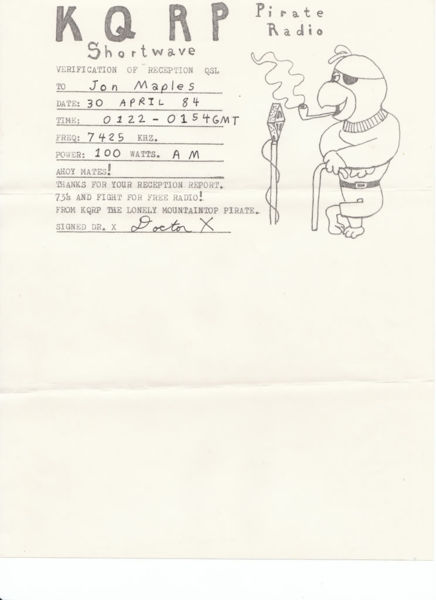 KQRP Pirate Radio
Shortwave
VERIFICATION OF RECEPTION QSL
TO Jon Maples
DATE: 30 APRIL 84
TIME: 0122-0154GMT
FREQ: 7425 KHZ.
POWER: 100 WATTS. AM
AHOY MATES!
THANKS FOR YOUR RECEPTION REPORT.
73s AND FIGHT FOR FREE RADIO!
FROM KQRP THE LONELY MOUNTAINTOP PIRATE.
SIGNED DR. X Doctor X